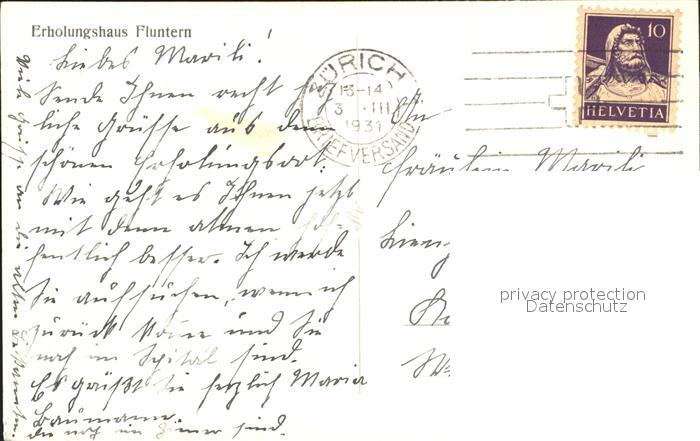 Erholungshaus Fluntern
Liebes Marili!
Sende Ihnen recht herz-
liche Grüsse aus dem
schönen Erholungsort.
Wie geht es Ihnen jetzt
mit dem atmen hof-
fentlich besser. Ich werde
Sie aufsuchen, wenn ich
zurück komme und Sie
noch im Spital sind.
Es grüßt Sie herzlich Maria
Baumann.
die noch im Zimer sind.
Viele Grüsse an die alten
ZÜRICH
13-14
3 III
1931
BRIEFVERSAND
10
HELVETIA
An
Fräulein Marili
privacy protection
Datenschutz